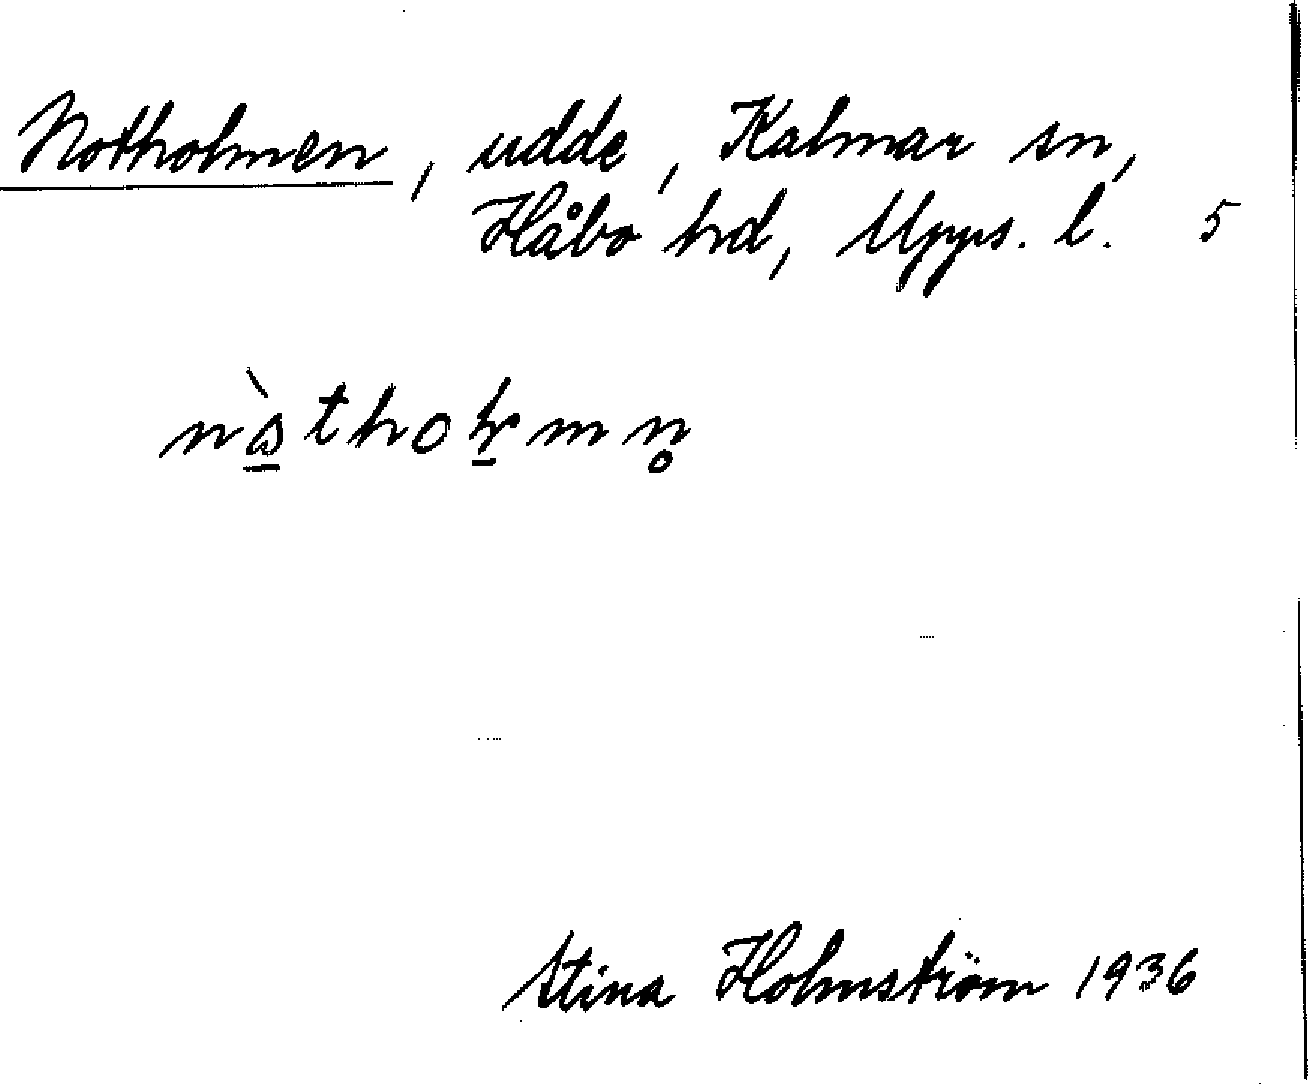 Notholmen, udde, Kalmar sn,
Håbo hd, Upps. l. 5
Stina Holmström 1936